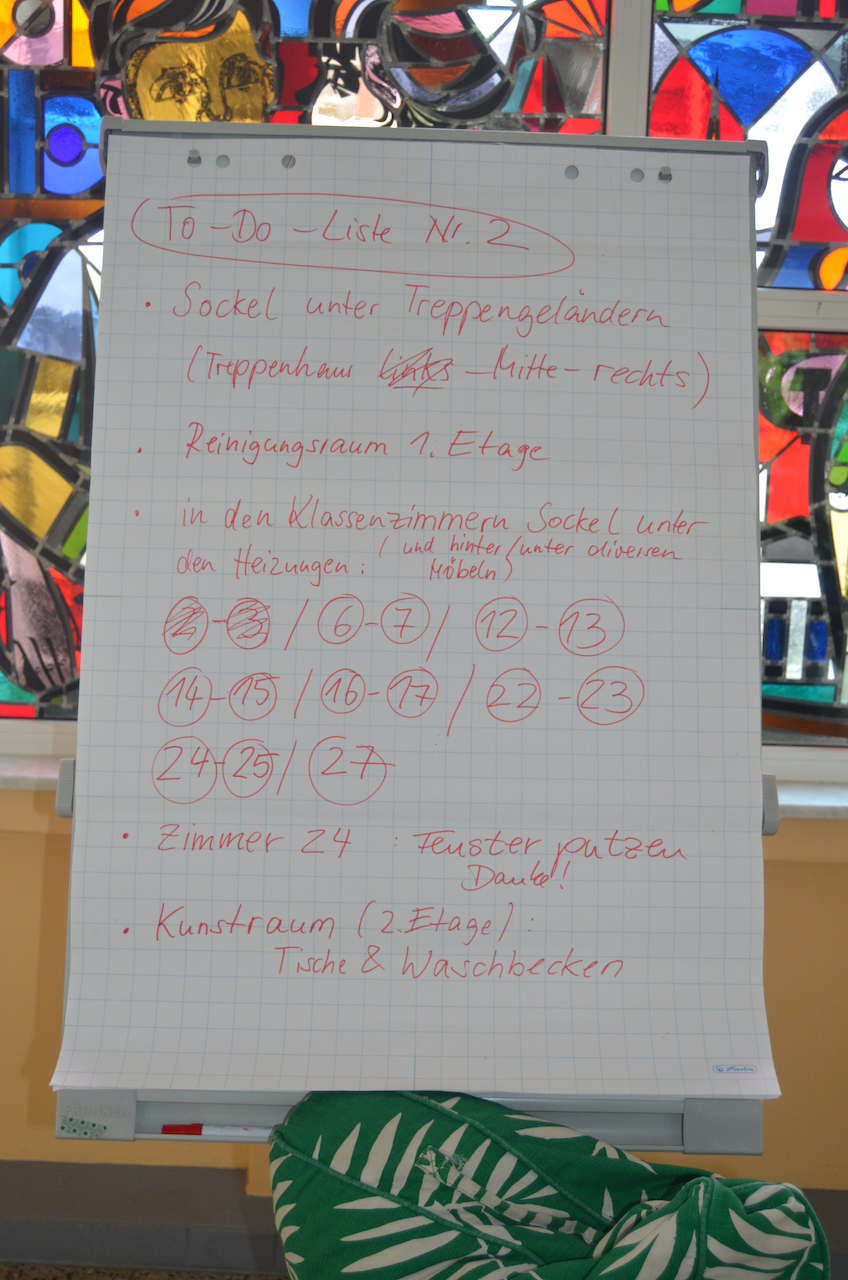 To-Do-Liste Nr. 2
• Sockel unter Treppengeländern
(Treppenhaus links – Mitte – rechts)
• Reinigungsraum 1. Etage
• in den Klassenzimmern Sockel unter
den Heizungen: (und hinter/unter diversen
Möbeln)
2-3 / 6-7 / 12-13
14-15 / 16-17 / 22-23
24-25 / 27
• Zimmer 24 : Fenster putzen
Danke!
• Kunstraum (2. Etage) :
Tische & Waschbecken